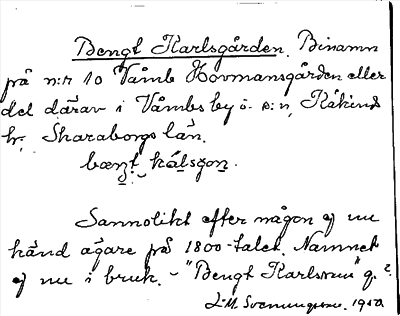 Bengt Karlsgården. Binamn
på n:r 10 Våmb Hovmansgården eller
del därav i Våmbs by o. s:n, Kåkinds
hr, Skaraborgs län.
bæŋt kálsgon.
Sannolikt efter någon ej nu
känd ägare på 1800-talet. Namnet
ej nu i bruk. - "Bengt Karlssons" g.?